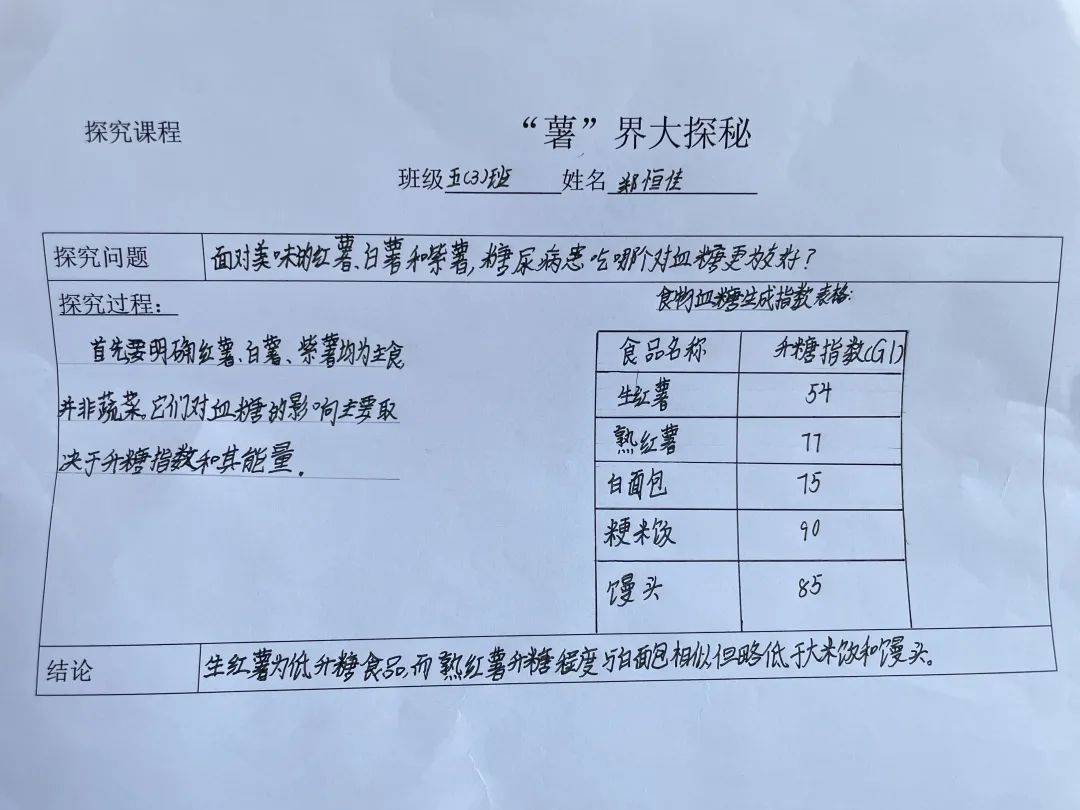 探究课程
“薯”界大探秘
班级五(3)班 姓名 郑恒佳
探究问题 面对美味的红薯、白薯和紫薯,糖尿病患吃哪个对血糖更为友好?
探究过程:
首先要明确红薯、白薯、紫薯均为主食
并非蔬菜。它们对血糖的影响主要取
决于升糖指数和其能量.
食物血糖生成指数表格:
食品名称 升糖指数(GI)
生红薯 54
熟红薯 77
白面包 75
粳米饭 90
馒头 85
结论 生红薯为低升糖食品,而熟红薯升糖程度与白面包相似但略低于大米饭和馒头。